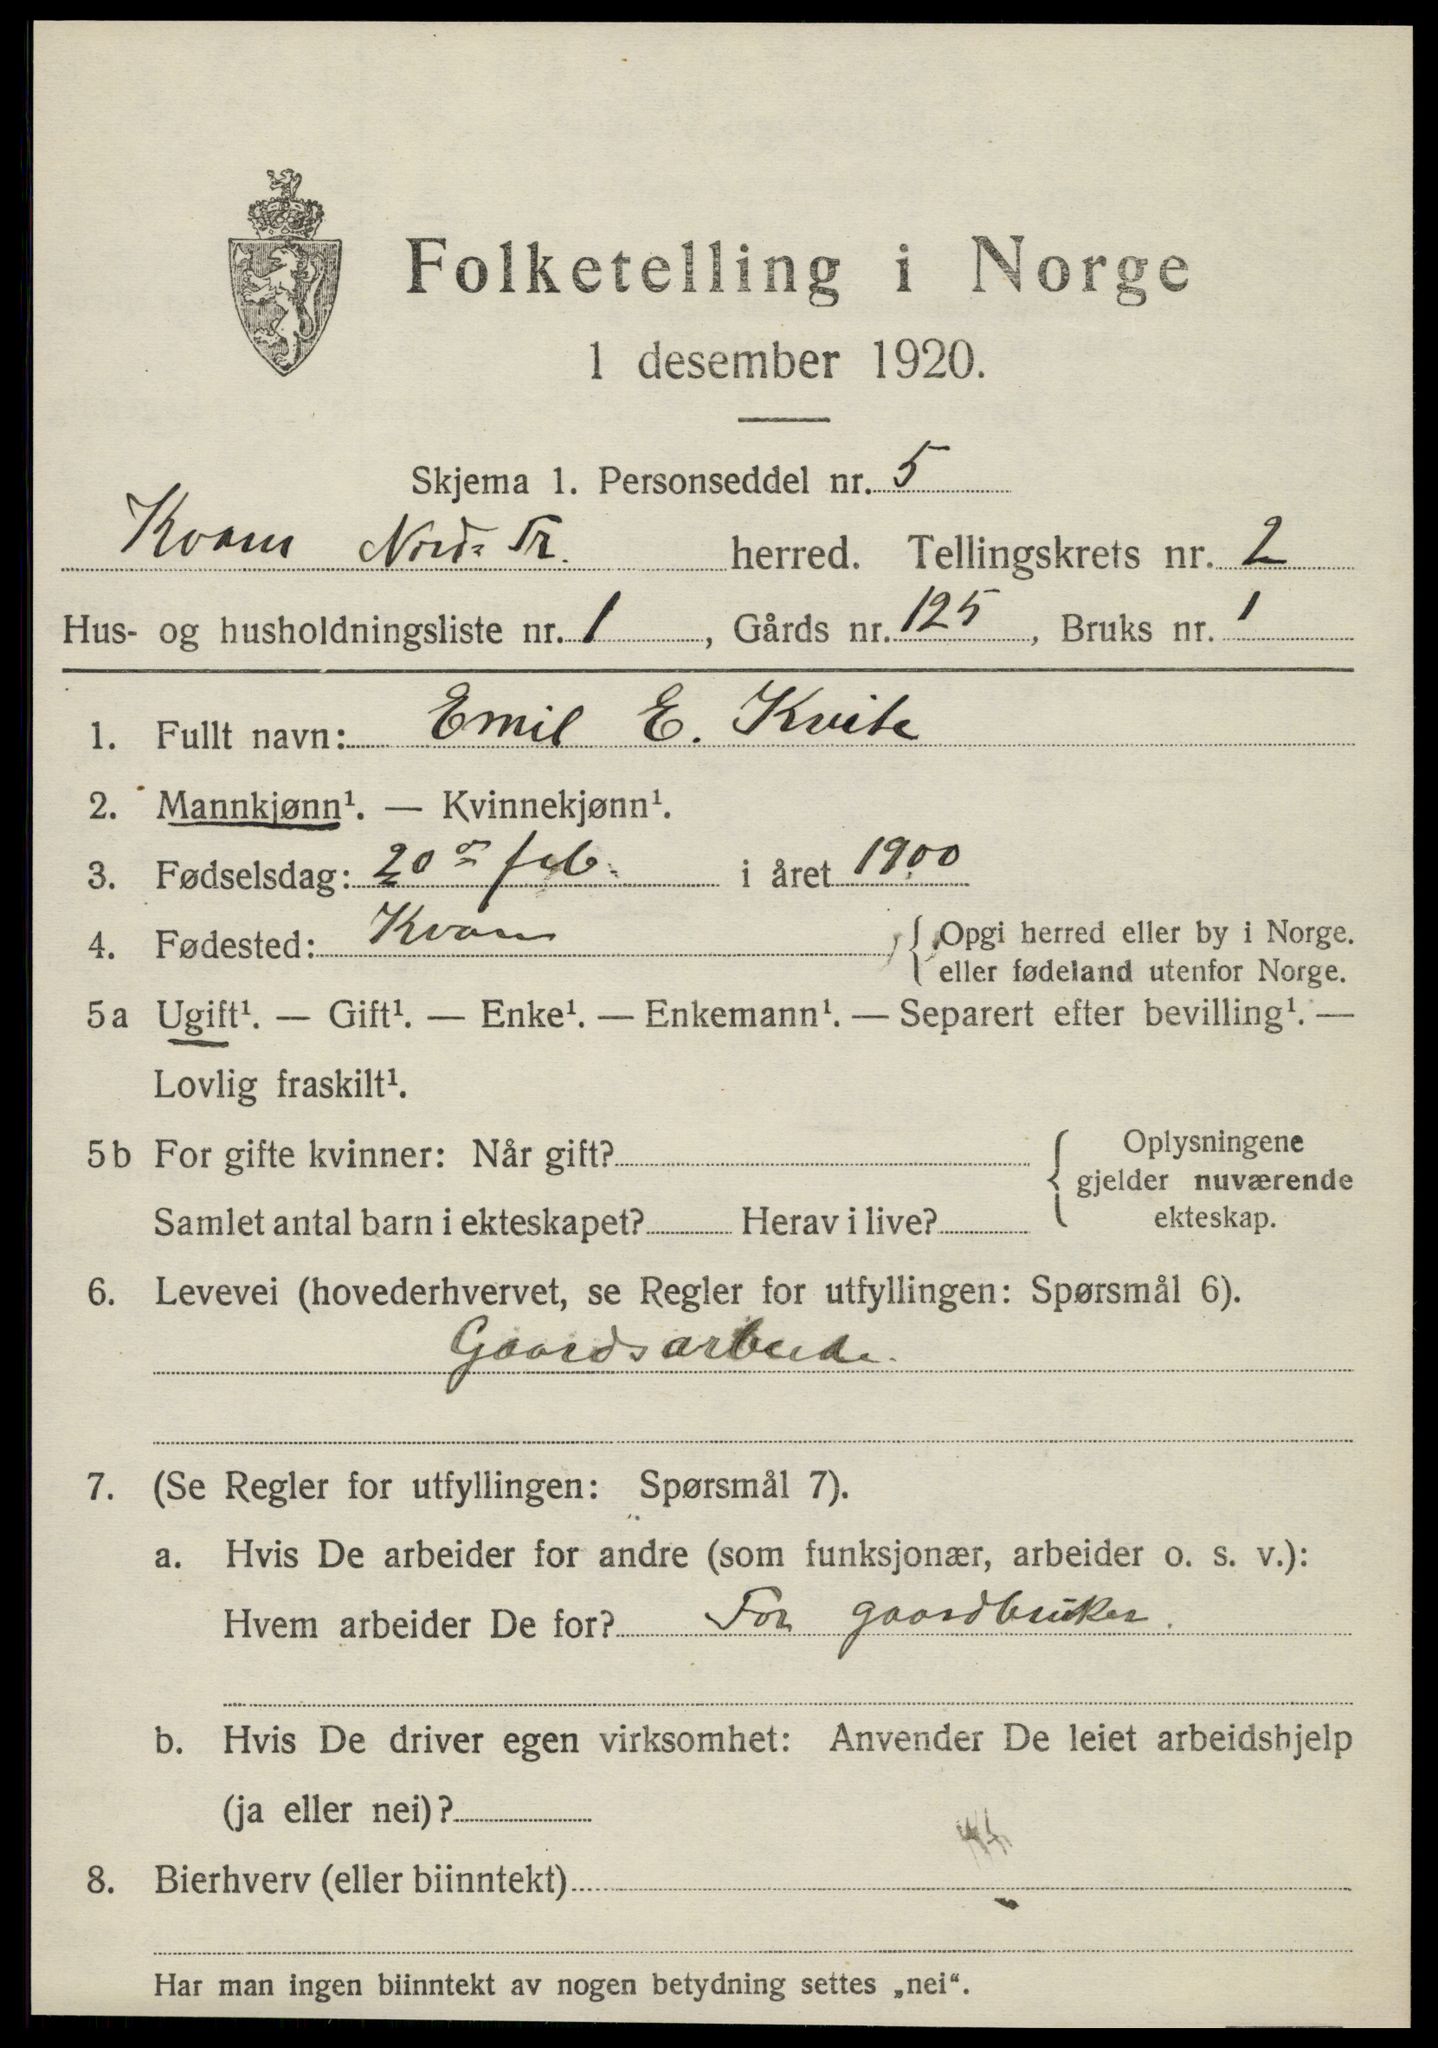 Folketelling i Norge
1 desember 1920.
Skjema 1. Personseddel nr. 5
Kvam Nord-Tr. herred. Tellingskrets nr. 2
Hus- og husholdningsliste nr. 1, Gårds nr. 125, Bruks nr. 1
1. Fullt navn: Emil E. Kvite
2. Mannkjønn¹. — Kvinnekjønn¹.
3. Fødselsdag: 20de feb. i året 1900
4. Fødested: Kvam { Opgi herred eller by i Norge.
eller fødeland utenfor Norge.
5a Ugift¹. — Gift¹. — Enke¹. — Enkemann¹. — Separert efter bevilling¹. —
Lovlig fraskilt¹.
5b For gifte kvinner: Når gift?
Samlet antal barn i ekteskapet? Herav i live?
{ Oplysningene
gjelder nuværende
ekteskap.
6. Levevei (hovederhvervet, se Regler for utfyllingen: Spørsmål 6).
Gaardsarbeide.
7. (Se Regler for utfyllingen: Spørsmål 7).
a. Hvis De arbeider for andre (som funksjonær, arbeider o. s. v.):
Hvem arbeider De for? For gaardbruker.
b. Hvis De driver egen virksomhet: Anvender De leiet arbeidshjelp
(ja eller nei)?
8. Bierhverv (eller biinntekt)
Har man ingen biinntekt av nogen betydning settes „nei“.